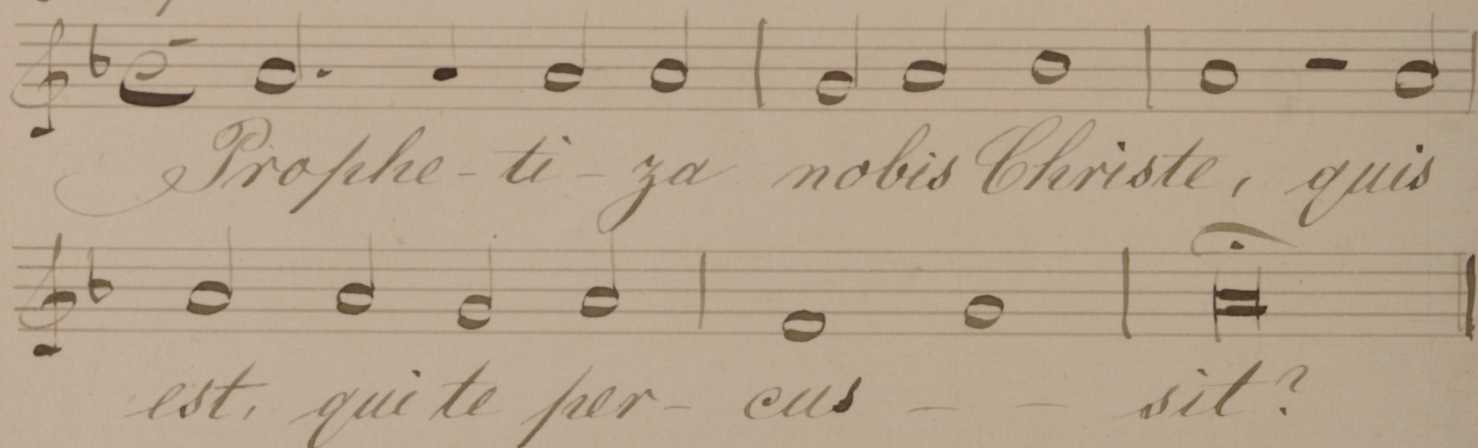 Prophe - ti - za nobis Christe, quis
est, qui te per - cus - - sit?